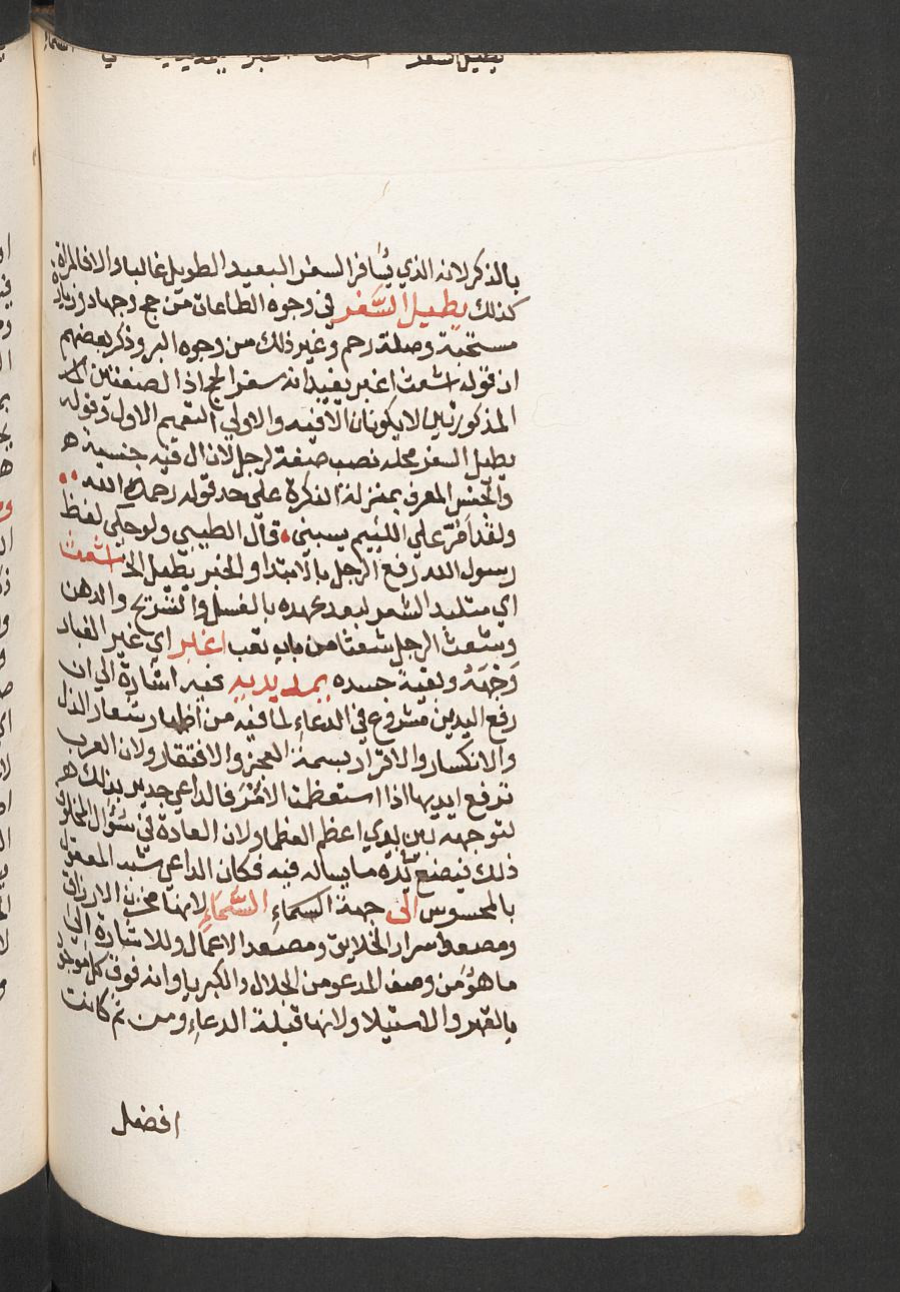 بالذكر لانه الذي يسافر السفر البعيد الطويل غالبا والا فالمراة
كذلك يطيل السفر في وجوه الطاعات من حج وجهاد وزيارة
مستحبة وصلة رحم وغير ذلك من وجوه البر وذكر بعضهم
ان قوله اشعث اغبر يفيد انه سفر الحج اذا الصفتين
المذكورتين لا يكونان الا فيه والاولي التعميم الاول وقوله
يطيل السفر محله نصب صفة لرجل لان ال فيه جنسية
والجنس المعرف بمنزلة النكرة على حد قوله رحمه الله
ولقد امر على اللئيم يسبني قال الطيبي ولو حكي لفظ
رسول الله رفع الرجل بالابتدا والخبر يطيل الخ اشعث
اي متلبد الشعر لبعد عهده بالغسل والتسريح والدهن
وشعث الرجل شعثا من باب تعب اغبر اي غير الغبار
وجهه وبقية جسده يمد يديه فيه اشارة الي ان
رفع اليدين مشروع في الدعاء لما فيه من اظهار شعار الذل
والانكسار والاقرار بسمة العجز والافتقار ولان العرب
ترفع ايديها اذا استعظمت الامر فالداعي جدير بذلك
لتوجهه بين يدي اعظم العظما ولان العادة في سؤال المخلوق
ذلك فيضع يده ما يساله فيه فكان الداعي شبه المعقول
بالمحسوس الى جهة السماء السماء لانها مخزن الارزاق
ومصعد اسرار الخلايق ومصعد الاعمال وللاشارة الي
ما هو من وصف المدعو من الجلال والكبريا وانه فوق كل موجود
بالقهر والاستيلا ولانها قبلة الدعاء ومن ثم كانت
افضل